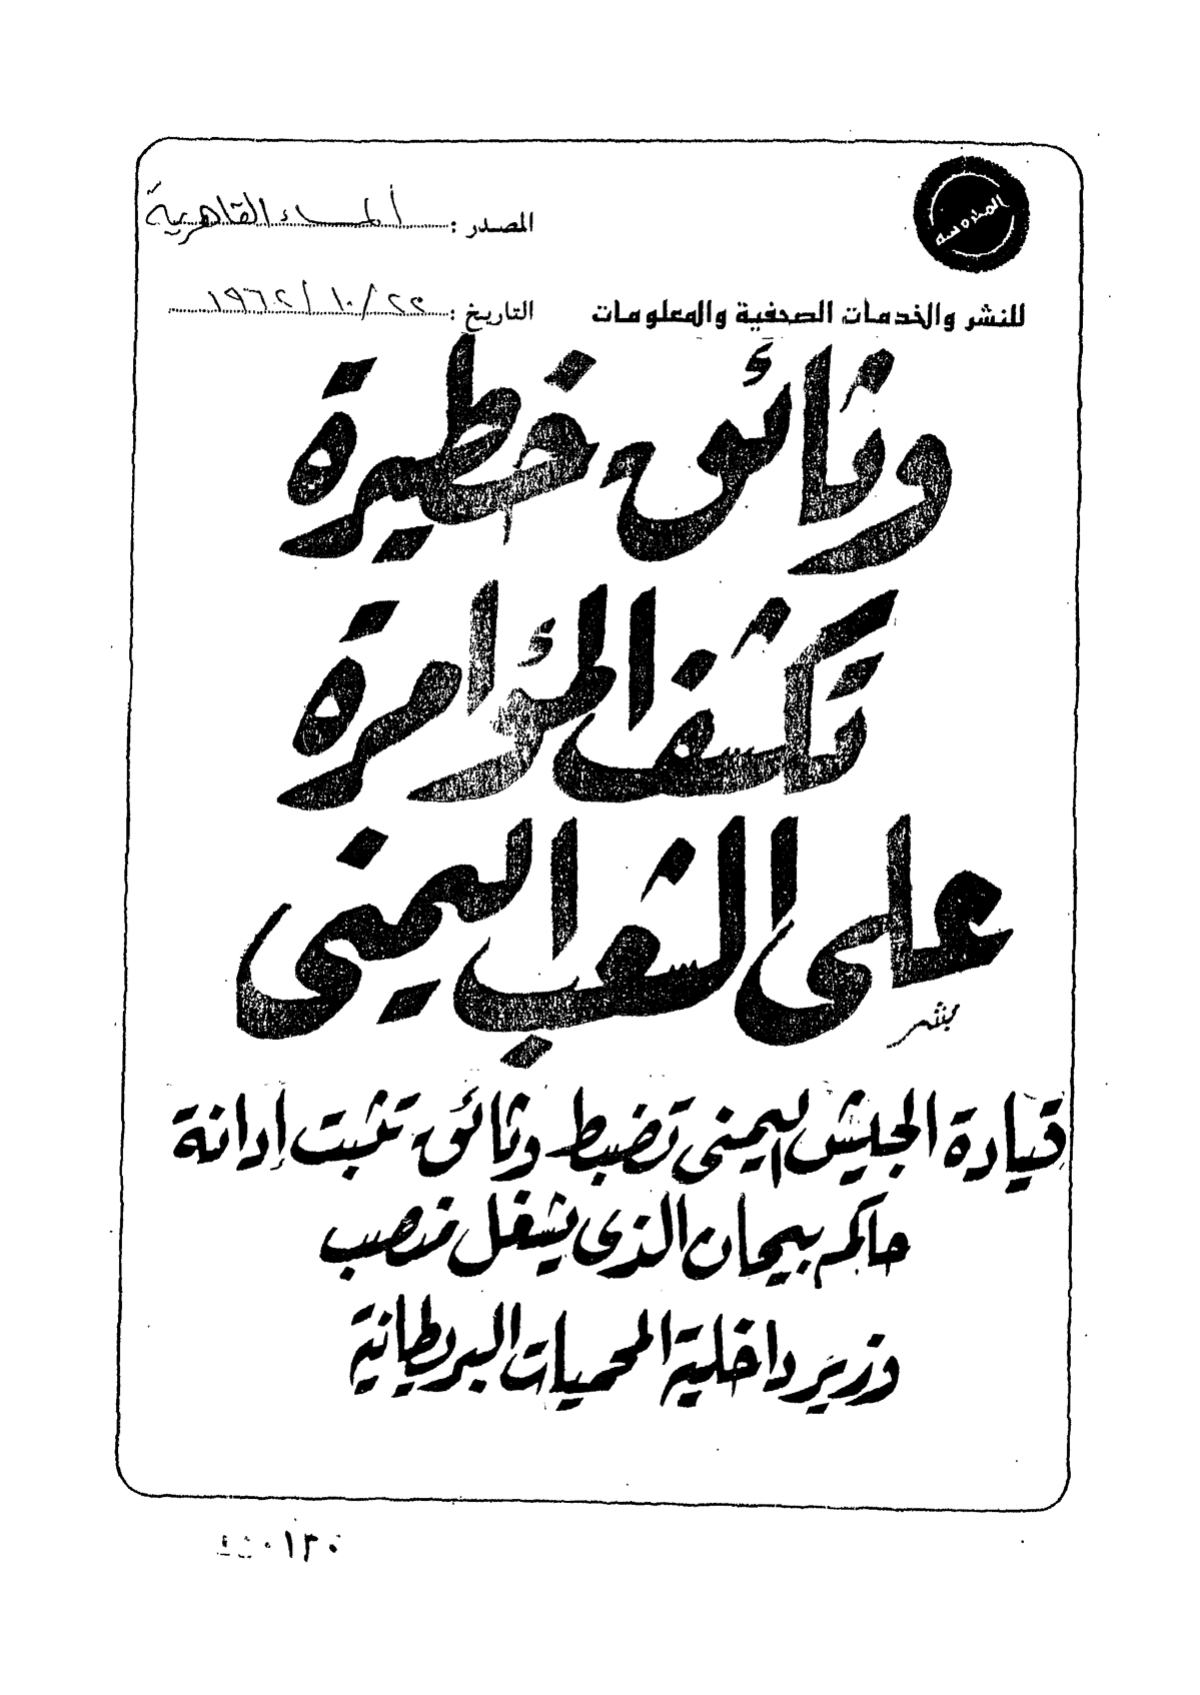 المصدر : المساء القاهرية
للنشر والخدمات الصحفية والمعلومات
التاريخ : ٢٢/١٠/١٩٦٢
وثائق خطيرة
تكشف المؤامرة
على الشعب اليمنى
قيادة الجيش اليمنى تضبط وثائق تثبت إدانة
حاكم بيحان الذى يشغل منصب
وزير داخلية المحميات البريطانية